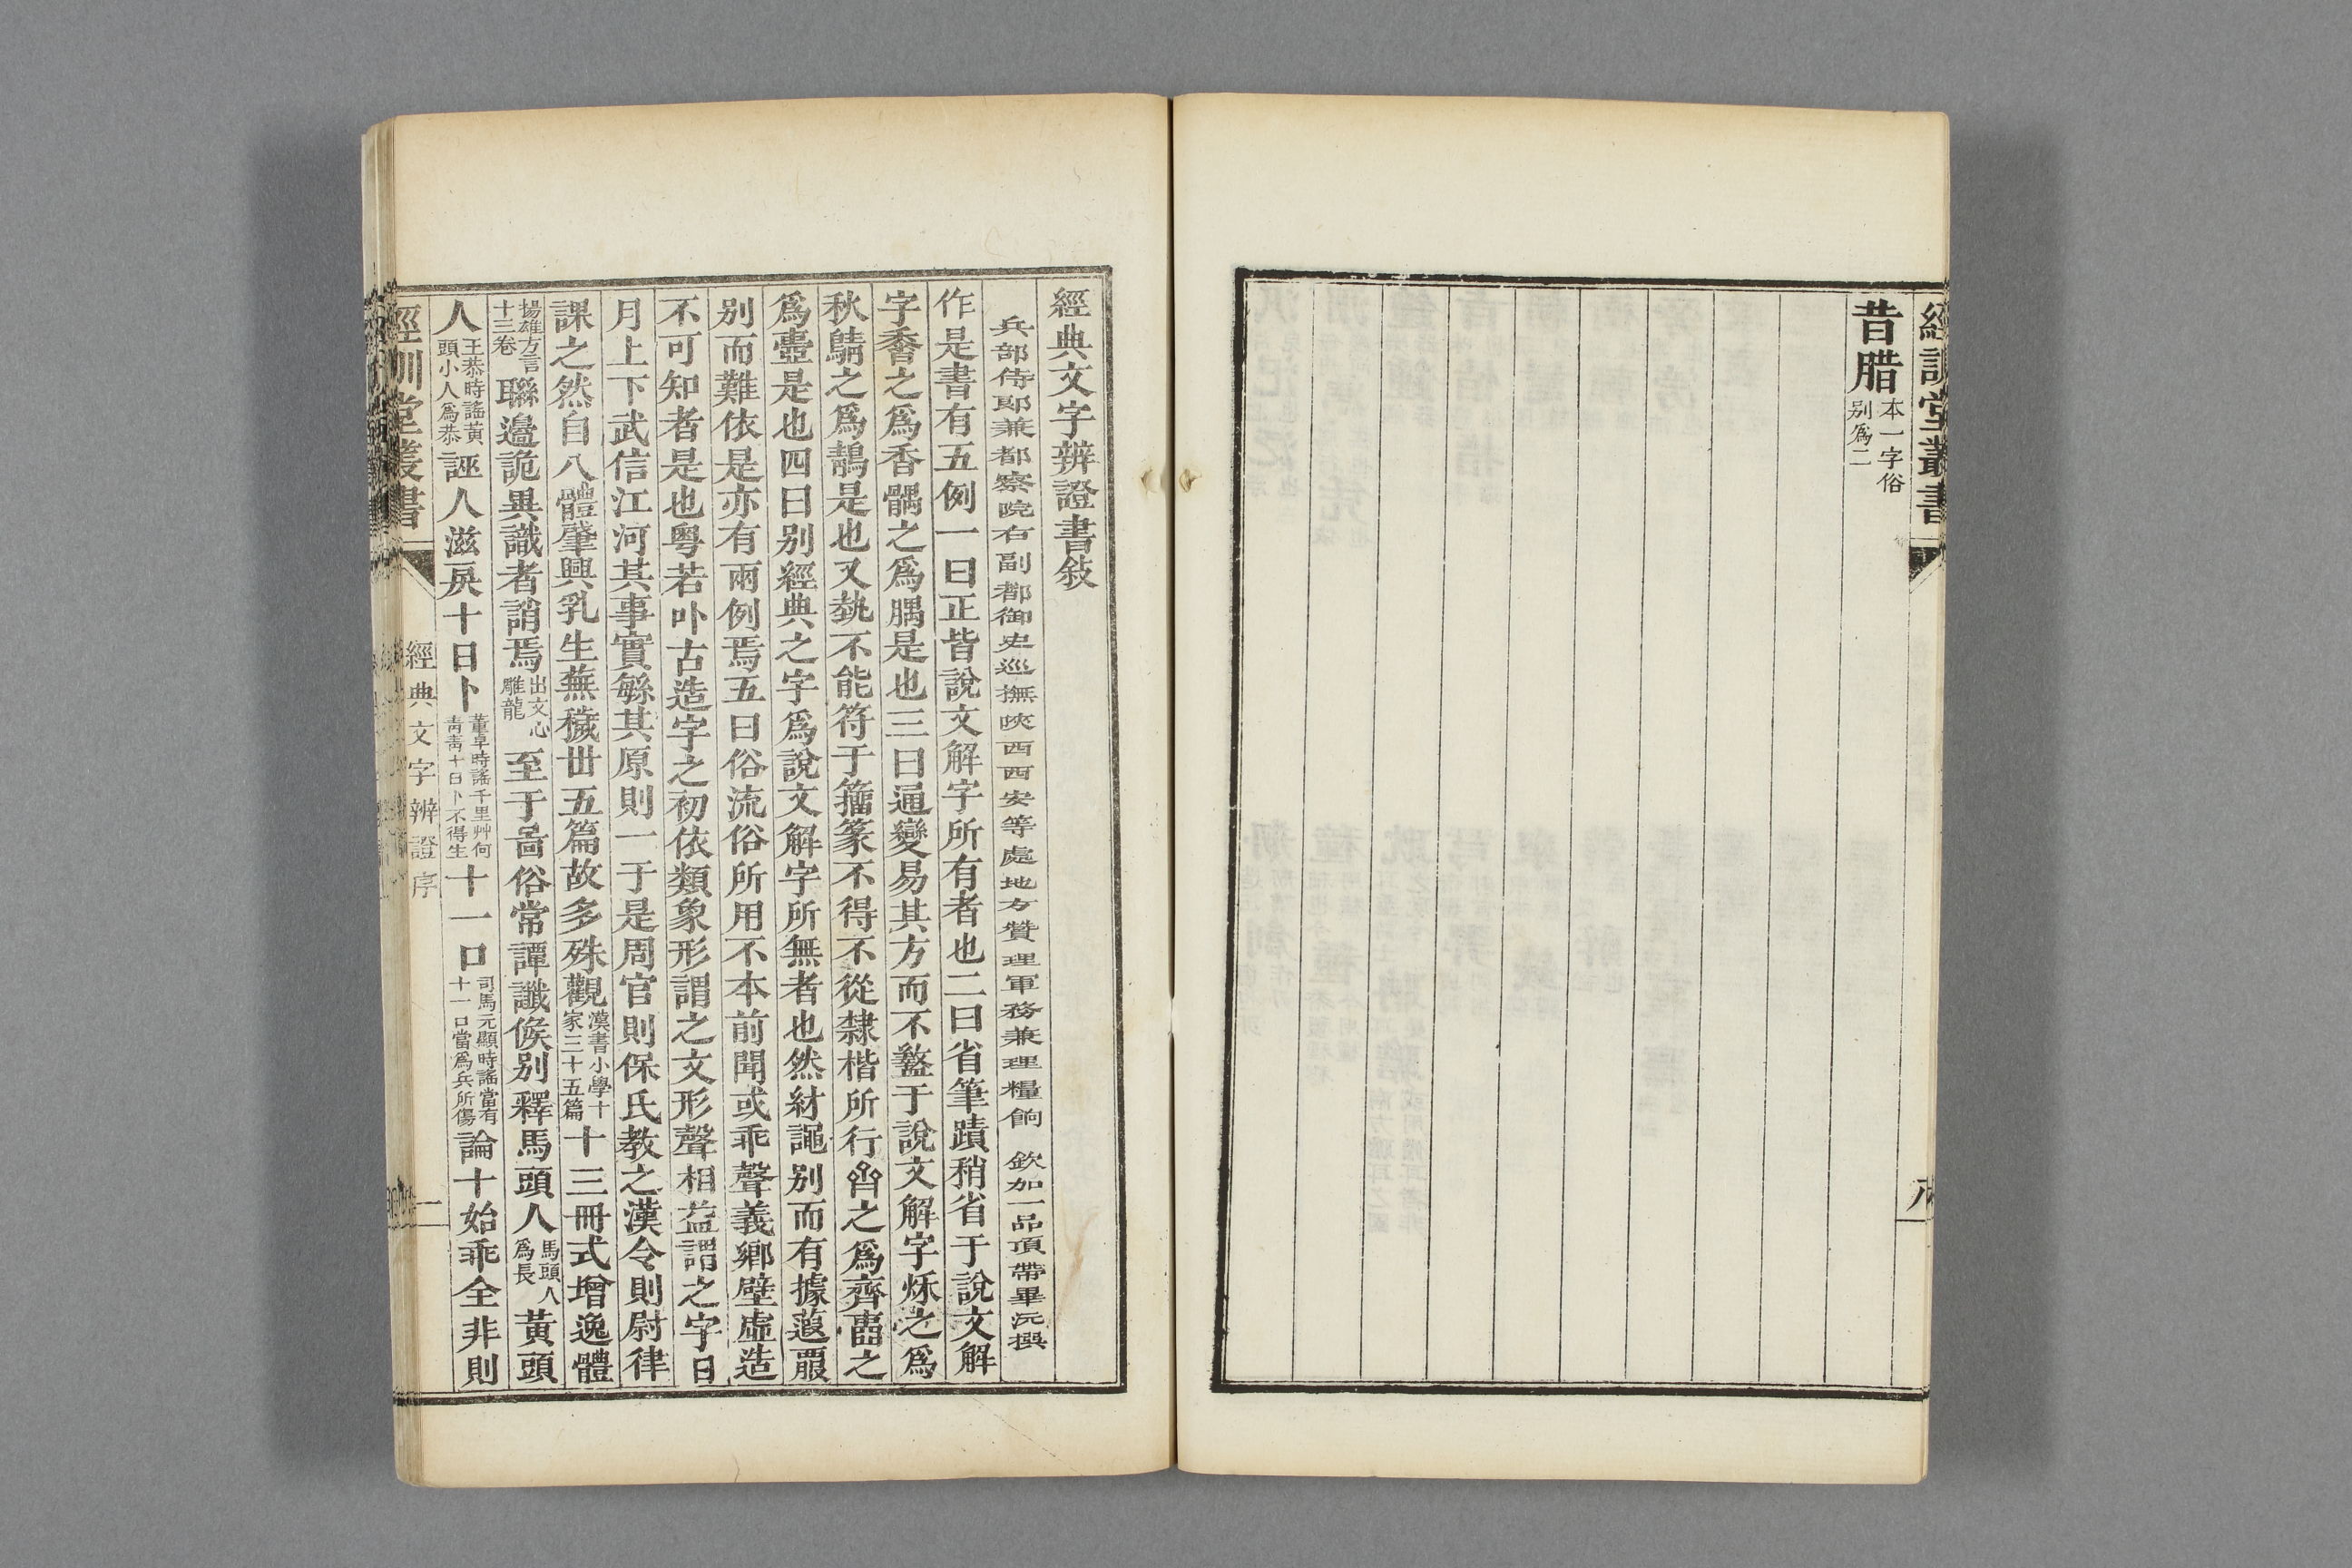 經訓堂叢書
八
昔腊本一字俗别爲二
經典文字辨證書敍
兵部侍郎兼都察院右副都御史巡撫陝西西安等處地方贊理軍務兼理糧餉 欽加一品頂帶畢沅撰
作是書有五例一曰正皆說文解字所有者也二曰省筆蹟稍省于說文解
字黁之爲香髃之爲腢是也三曰通變易其方而不盭于說文解字烁之爲
秋鶄之爲鶄是也又埶不能符于籀篆不得不從隸楷所行𪗉之爲齊𠾂之
爲臺是也四曰别經典之字爲說文解字所無者也然紂譝别而有據蔆覈
别而難依是亦有兩例焉五曰俗流俗所用不本前聞或乖聲義鄉壁虛造
不可知者是也粵若卟古造字之初依類象形謂之文形聲相益謂之字日
月上下武信江河其事實緐其原則一于是周官則保氏教之漢令則尉律
課之然自八體肇興乳生蕪穢丗五篇故多殊觀漢書小學十家三十五篇十三冊式增逸體
揚雄方言十三卷聯邉詭異識者誚焉出文心雕龍至于啚俗常譚讖候别釋馬頭人馬頭人爲長黃頭
人王恭時謠黃頭小人爲恭誣人滋戾十日卜董卓時謠千里艸何青青十日卜不得生十一口司馬元顯時謠當有十一口當爲兵所傷論十始乖全非則
經訓堂叢書
經典文字辨證序
一